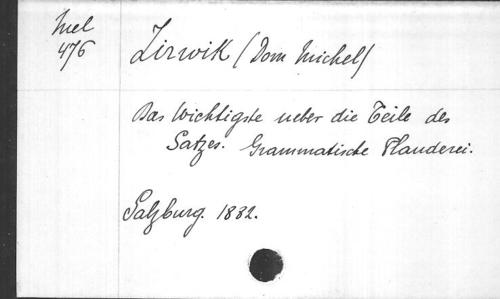 Mel
476
Zirwik (Dom Michel)
Das Wichtigste ueber die Teile des
Satzes. Grammatische Plauderei.
Salzburg. 1882.